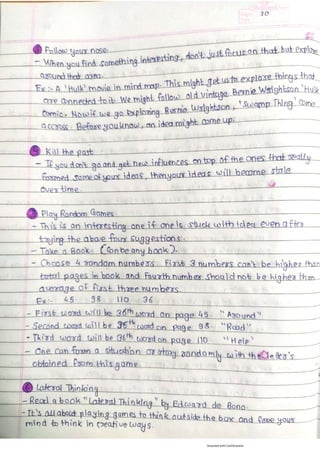 30
③ Follow your nose.
- When you find something interesting, don't just focus on that but explore
around that area.
Ex :- A 'Hulk' movie in mind map. This might get us to explore things that
are connected to it. We might follow old vintage Bernie Wrightson 'Hulk
Comic. Now if we go exploring Bernie Wrightson, 'Swamp Thing' come
across. Before you know, an idea might come up.
Kill the past
- If you don't go and get new influences on top of the ones that really
formed some of your ideas, then your ideas will become stale
over time.
⑤ Play Random Games
- This is an interesting one if one is stuck with idea even after
trying the above four suggestions.
- Take a Book. (Can be any book).
- Choose 4 random numbers. First 3 numbers can't be higher than
total pages in book and fourth number should not be higher than
average of first three numbers.
Ex:- 45 98 110 36
- First word will be 36th word on page 45 "Around"
- Second word will be 36th word on page 98 "Road"
- Third word will be 36th word on page 110 "Help"
- One can form a situation or story randomly with the
obtained from this game.
⑥ Lateral Thinking
- Read a book "Lateral Thinking" by Edward de Bono.
- It's all about playing games to think outside the box and force your
mind to think in creative ways.
Scanned with CamScanner